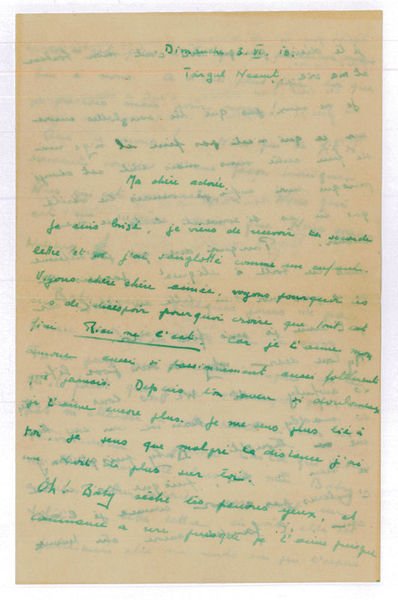 Dimanche 3. VI.
Târgul Neamț.
Ma chère adorée,
Je suis brisé, je viens de recevoir ta seconde
lettre et j'ai sanglotté comme un enfant.
Voyons chère chère aimée, voyons pourquoi
de désespoir pourquoi croire que tout est
fini. Rien ne l'est. Car je t'aime mon
amour aussi si passionnément aussi follement
que jamais. Depuis ton aveu si douloureux
je t'aime encore plus. Je me sens plus lié à
toi, je sens que malgré la distance j'ai
de plus sur toi.
Oh! Baby sèche tes pauvres yeux, et
commence à rire puisque je t'aime puisque